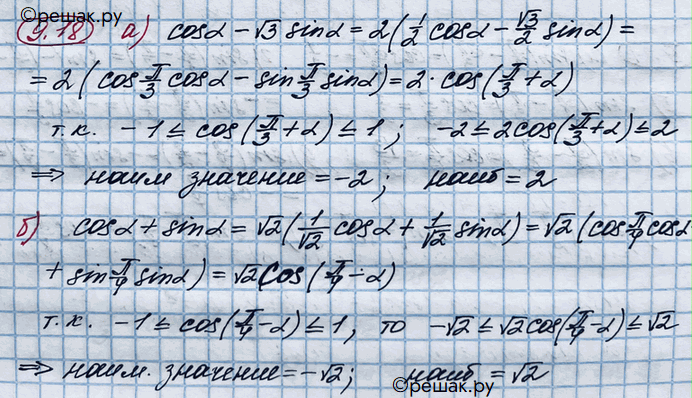 ©reшак.ру
9.18 а) cosα − √3 sinα = 2(1/2 cosα − √3/2 sinα) =
= 2(cos π/3 cosα − sin π/3 sinα) = 2·cos(π/3 + α)
т.к. −1 ≤ cos(π/3 + α) ≤ 1; −2 ≤ 2cos(π/3 + α) ≤ 2
⇒ наим значение = −2; наиб = 2
б) cosα + sinα = √2(1/√2 cosα + 1/√2 sinα) = √2(cos π/4 cosα
+ sin π/4 sinα) = √2 cos(π/4 − α)
т.к. −1 ≤ cos(π/4 − α) ≤ 1, то −√2 ≤ √2cos(π/4 − α) ≤ √2
⇒ наим. значение = −√2; наиб = √2
©reшак.ру